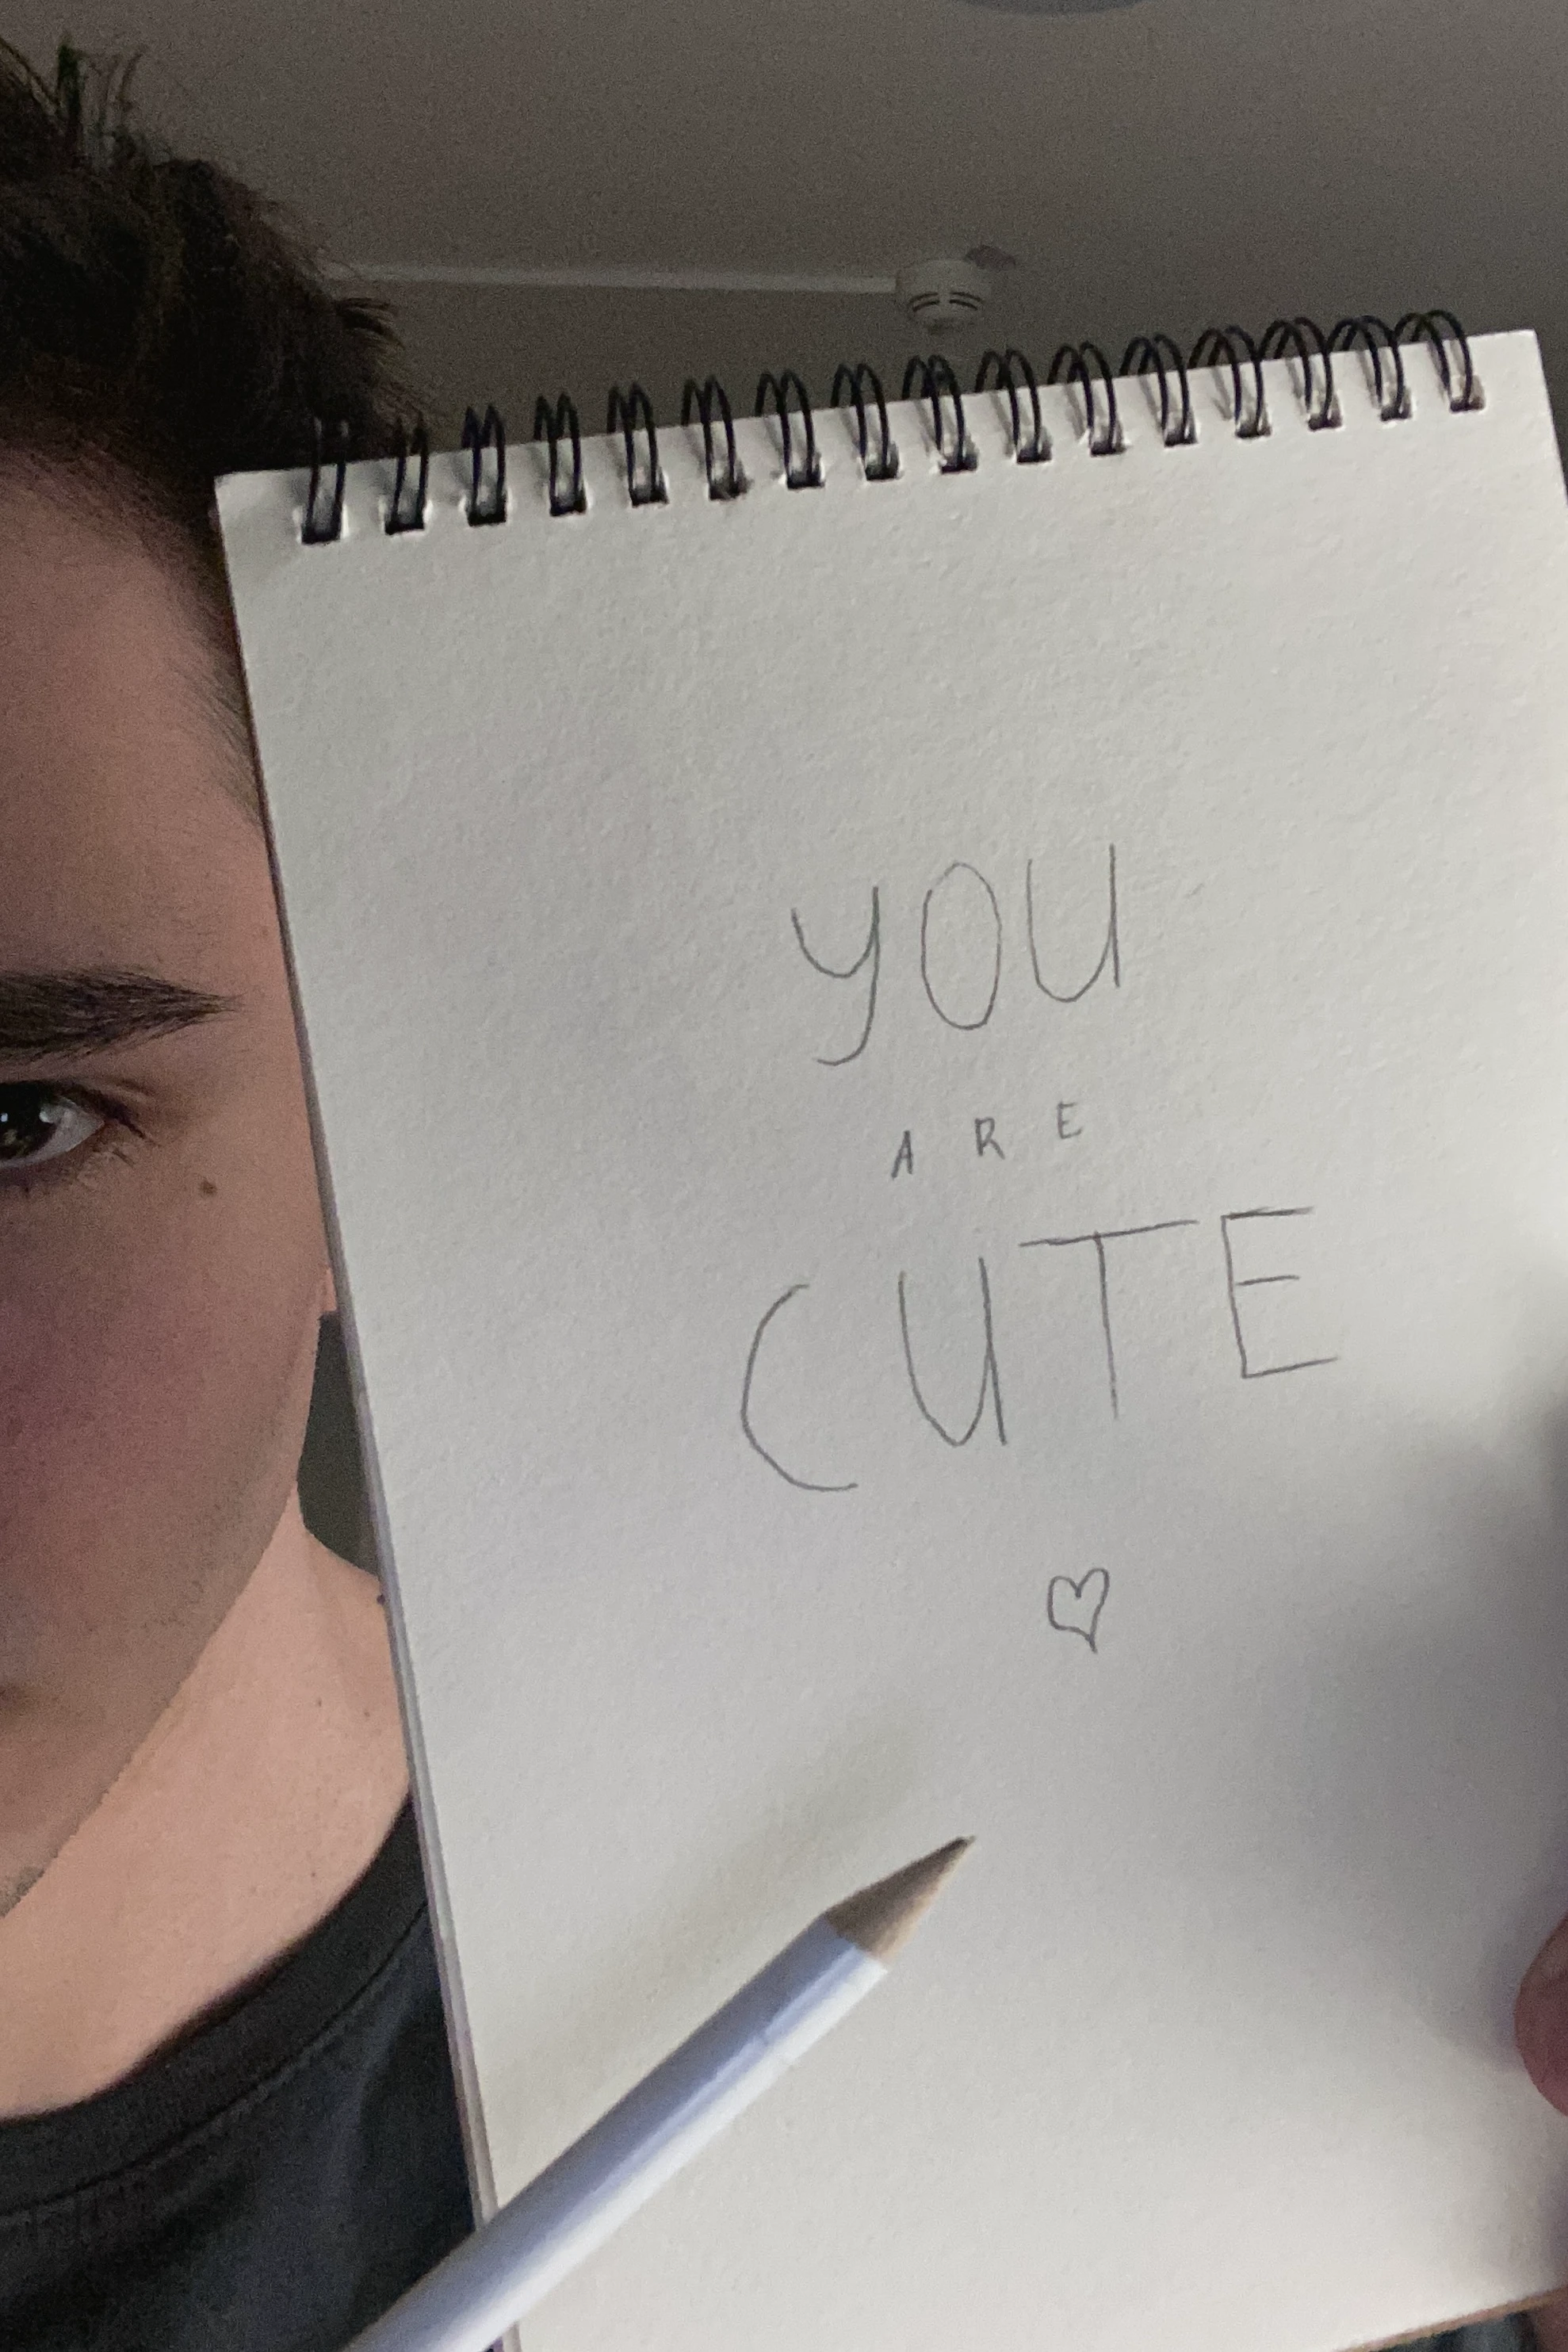 YOU
ARE
CUTE